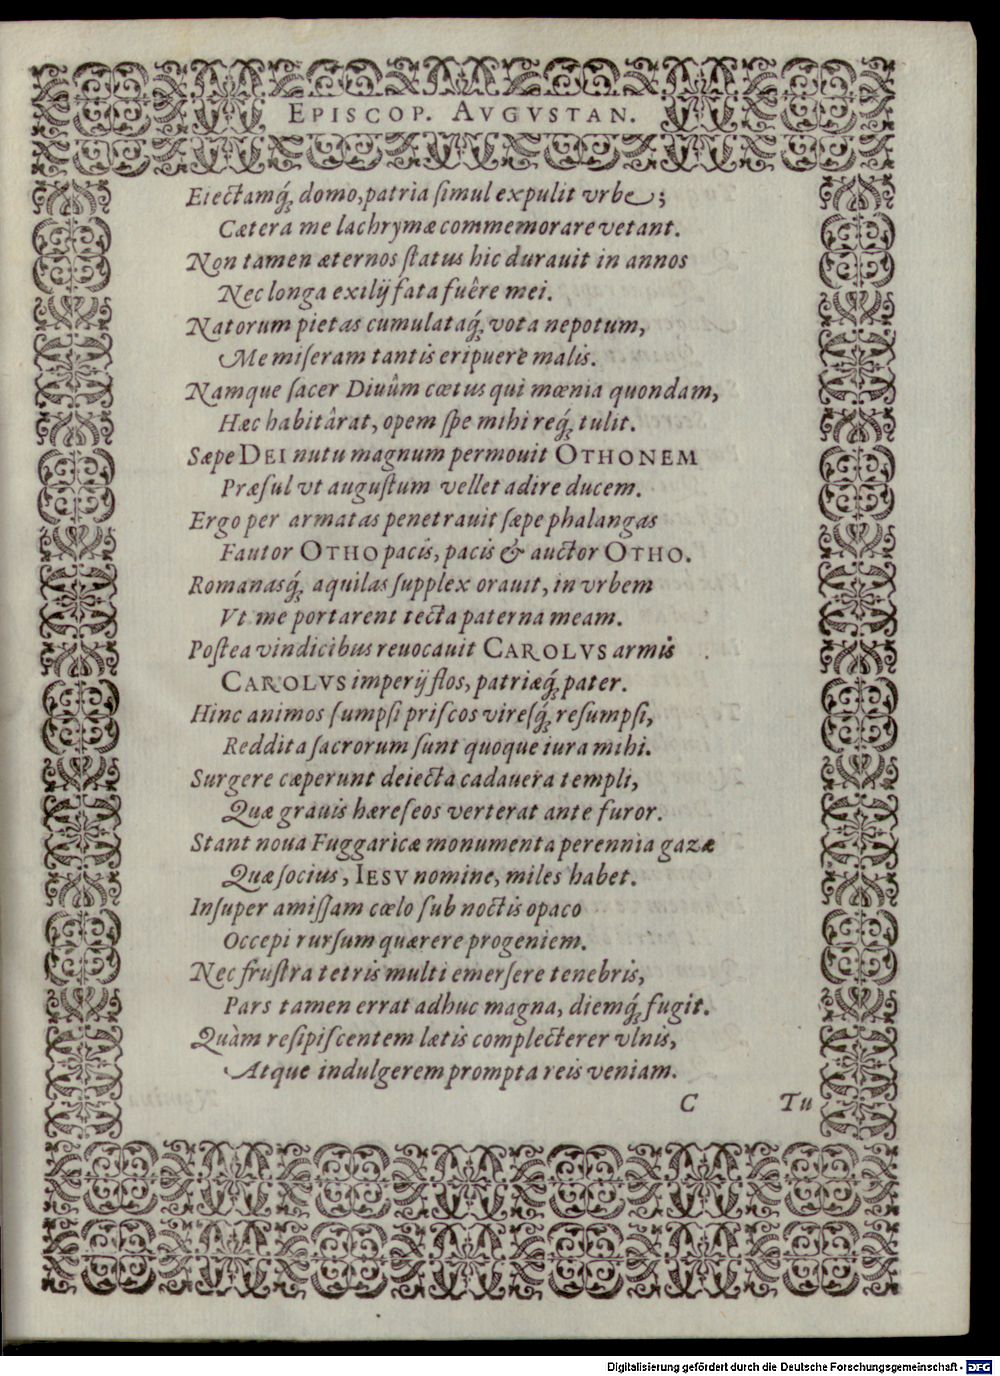 EPISCOP. AVGVSTAN.
Eiectamq́ꝫ domo, patria ſimul expulit vrbe;
Cætera me lachrymæ commemorare vetant.
Non tamen æternos ſtatus hic durauit in annos
Nec longa exilij fata fuêre mei.
Natorum pietas cumulataq́ꝫ vota nepotum,
Me miſeram tantis eripuere malis.
Namque ſacer Diuûm cœtus qui mœnia quondam,
Hæc habitârat, opem ſpe mihi req́ꝫ tulit.
Sæpe DEI nutu magnum permouit OTHONEM
Præſul vt auguſtum vellet adire ducem.
Ergo per armatas penetrauit ſæpe phalangas
Fautor OTHO pacis, pacis & auctor OTHO.
Romanasq́ꝫ aquilas ſupplex orauit, in vrbem
Vt me portarent tecta paterna meam.
Poſtea vindicibus reuocauit CAROLVS armis
CAROLVS imperij flos, patriæq́ꝫ pater.
Hinc animos ſumpſi priſcos vireſq́ꝫ reſumpſi,
Reddita ſacrorum ſunt quoque iura mihi.
Surgere cæperunt deiecta cadauera templi,
Quæ grauis hæreſeos verterat ante furor.
Stant noua Fuggaricæ monumenta perennia gazæ
Quæ ſocius, IESV nomine, miles habet.
Inſuper amiſſam cœlo ſub noctis opaco
Occepi rurſum quærere progeniem.
Nec fruſtra tetris multi emerſere tenebris,
Pars tamen errat adhuc magna, diemq́ꝫ fugit.
Quàm reſipiſcentem lætis complecterer vlnis,
Atque indulgerem prompta reis veniam.
C Tu
Digitalisierung gefördert durch die Deutsche Forschungsgemeinschaft - DFG